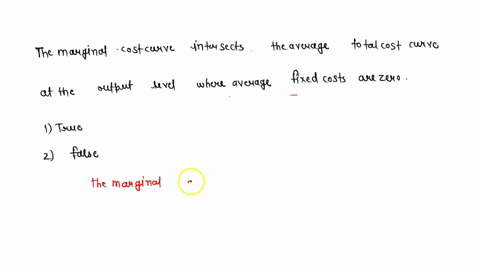 The marginal cost curve intersects the average total cost curve
at the output level where average fixed costs are zero.
1) True
2) false
the marginal